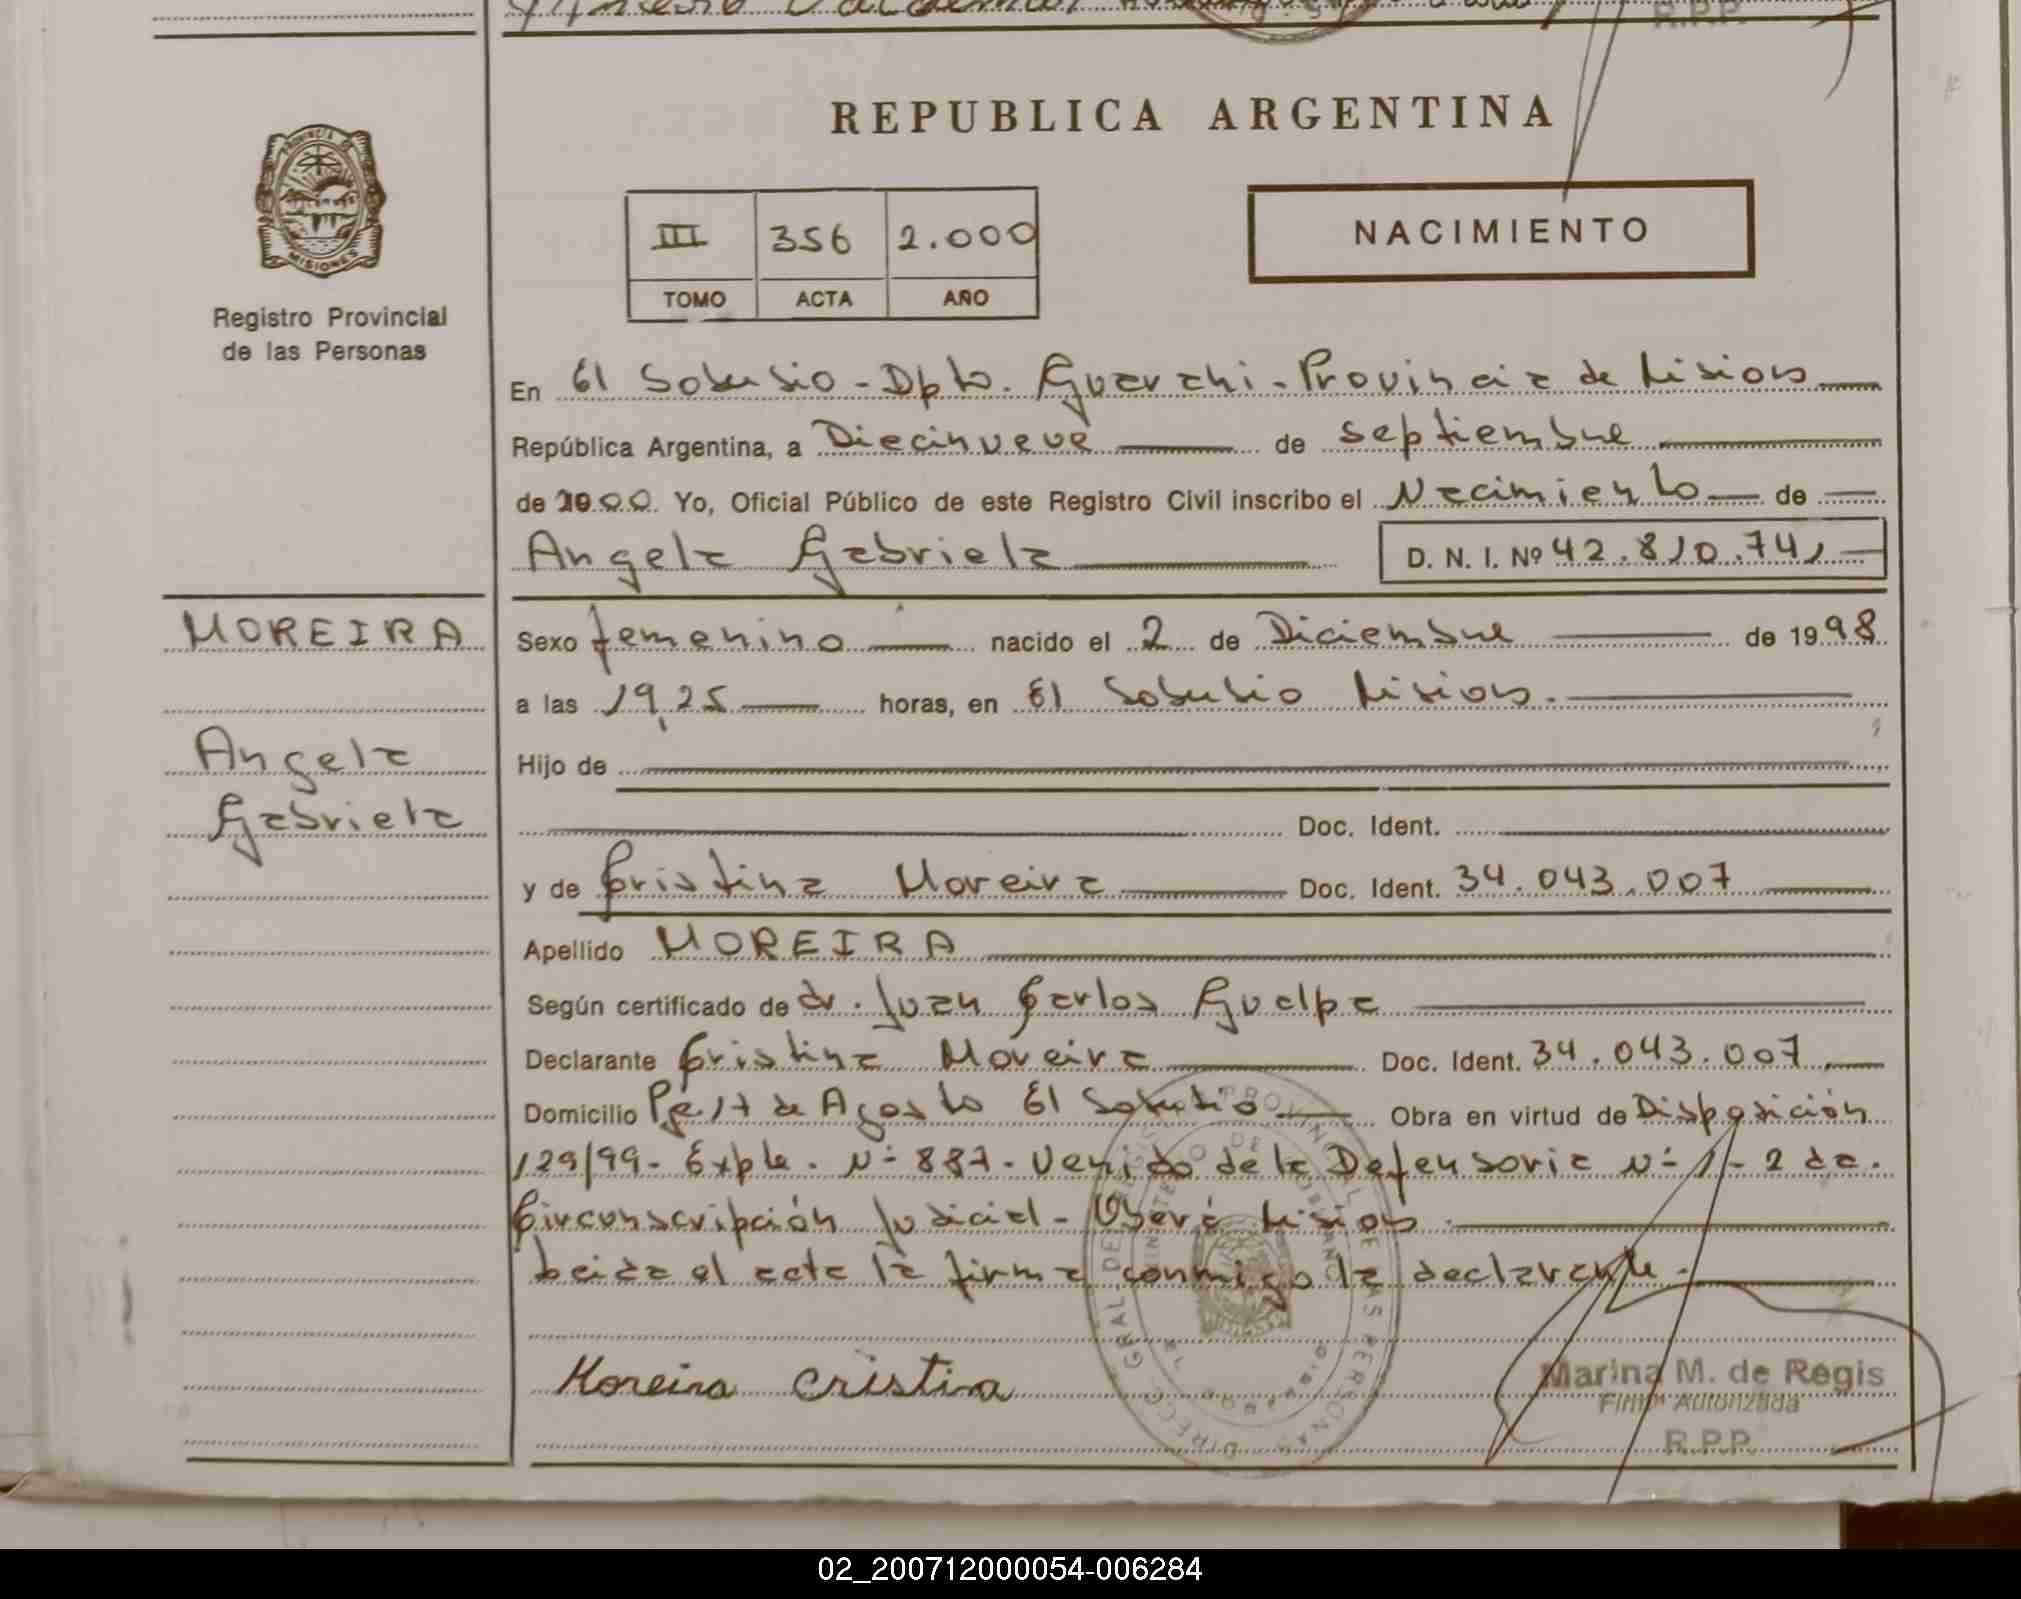 REPUBLICA ARGENTINA
PROVINCIA DE MISIONES
Registro Provincial
de las Personas
III 356 2.000
TOMO ACTA AÑO
NACIMIENTO
En El Soberbio - Dpto. Guarani - Provincia de Misiones
República Argentina, a Diecinueve de septiembre
de 2000 Yo, Oficial Público de este Registro Civil inscribo el Nacimiento de
Angela Gabriela D. N. I. Nº 42.810.741
MOREIRA
Angela
Gabriela
Sexo femenino nacido el 2 de Diciembre de 1998
a las 19,25 horas, en El Soberbio Misiones.
Hijo de
Doc. Ident.
y de Cristina Moreira Doc. Ident. 34.043.007
Apellido MOREIRA
Según certificado de dr. Juan Carlos Guelpa
Declarante Cristina Moreira Doc. Ident. 34.043.007
Domicilio Pje 17 de Agosto El Soberbio Obra en virtud de Disposición
129/99 - Expte. Nº 887 - Venido de la Defensoria Nº 1 - 2 da.
Circunscripción Judicial - Oberá Misiones
Leida el acta la firma conmigo la declarante.
Moreira Cristina
Marina M. de Regis
Firma Autorizada
R.P.P.
02_200712000054-006284